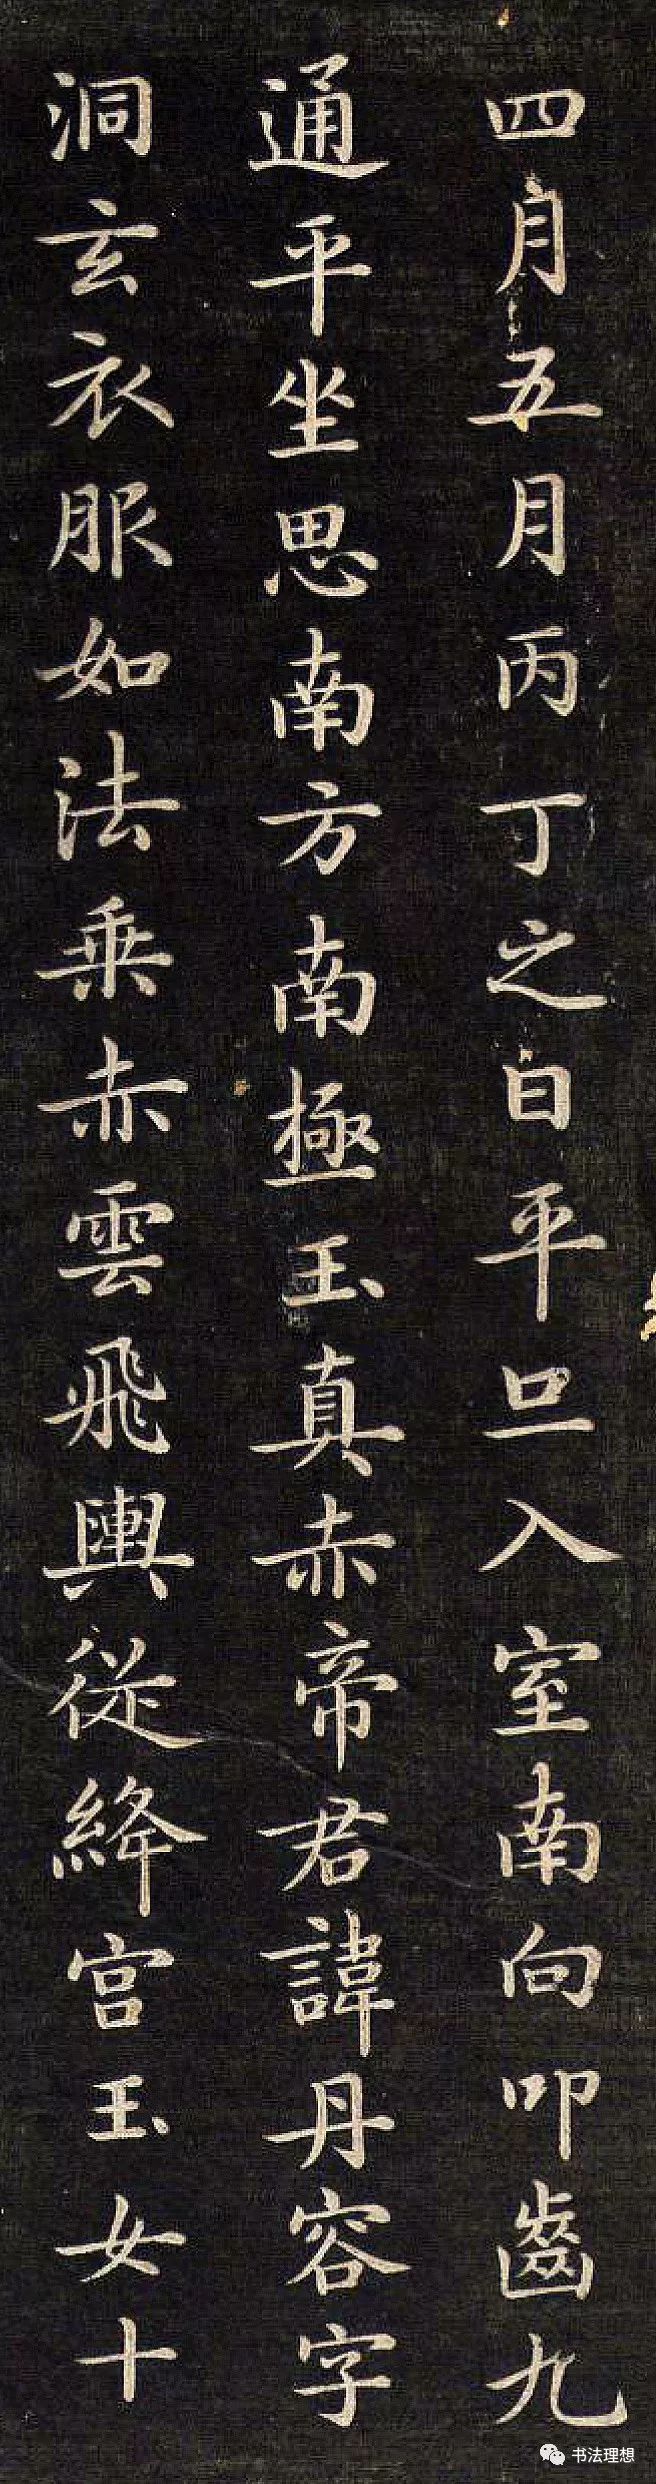 四月五月丙丁之日平旦入室南向叩齒九
通平坐思南方南極玉真赤帝君諱丹容字
洞玄衣服如法乘赤雲飛輿從絳宮玉女十
书法理想